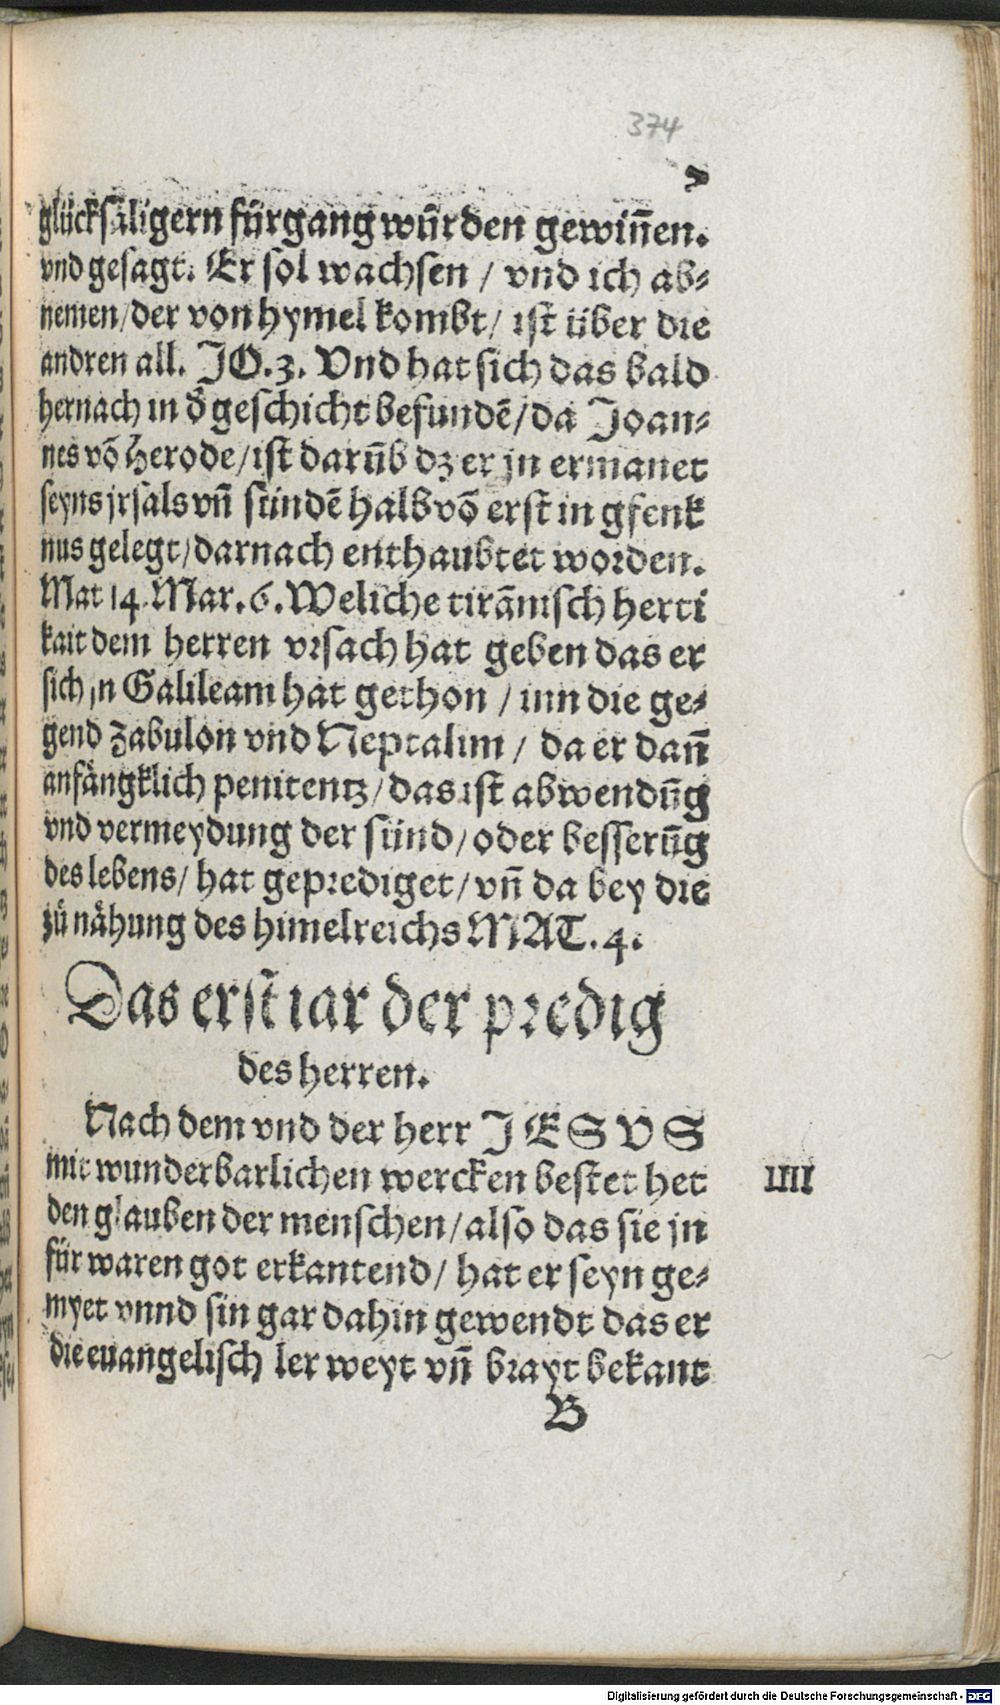 374
glücksäligern fürgang würden gewiñen.
vnd gesagt. Er sol wachsen / vnd ich ab⸗
nemen/der von hymel kombt/ ist über die
andren all. JO.3. Vnd hat sich das bald
hernach in d̄ geschicht befundē/da Joan⸗
nes vō Herode/ist darūb dz er jn ermanet
seyns jrsals vñ sündē halb vō erst in gfenk
nus gelegt/darnach enthaubtet worden.
Mat 14. Mar.6. Weliche tirānisch herti
kait dem herren vrsach hat geben das er
sich jn Galileam hat gethon / inn die ge⸗
gend zabulon vnd Neptalim / da er dañ
anfängklich penitentz/das ist abwendūg
vnd vermeydung der sünd/oder besserūg
des lebens/ hat geprediget/vñ da bey die
zů nähung des himelreichs MAT.4.
Das erst iar der predig
des herren.
Nach dem vnd der herr JESVS
mit wunderbarlichen wercken bestet het
IIII
den glauben der menschen/also das sie jn
für waren got erkantend/ hat er seyn ge⸗
myet vnnd sin gar dahin gewendt das er
die euangelisch ler weyt vñ brayt bekant
B
Digitalisierung gefördert durch die Deutsche Forschungsgemeinschaft - DFG